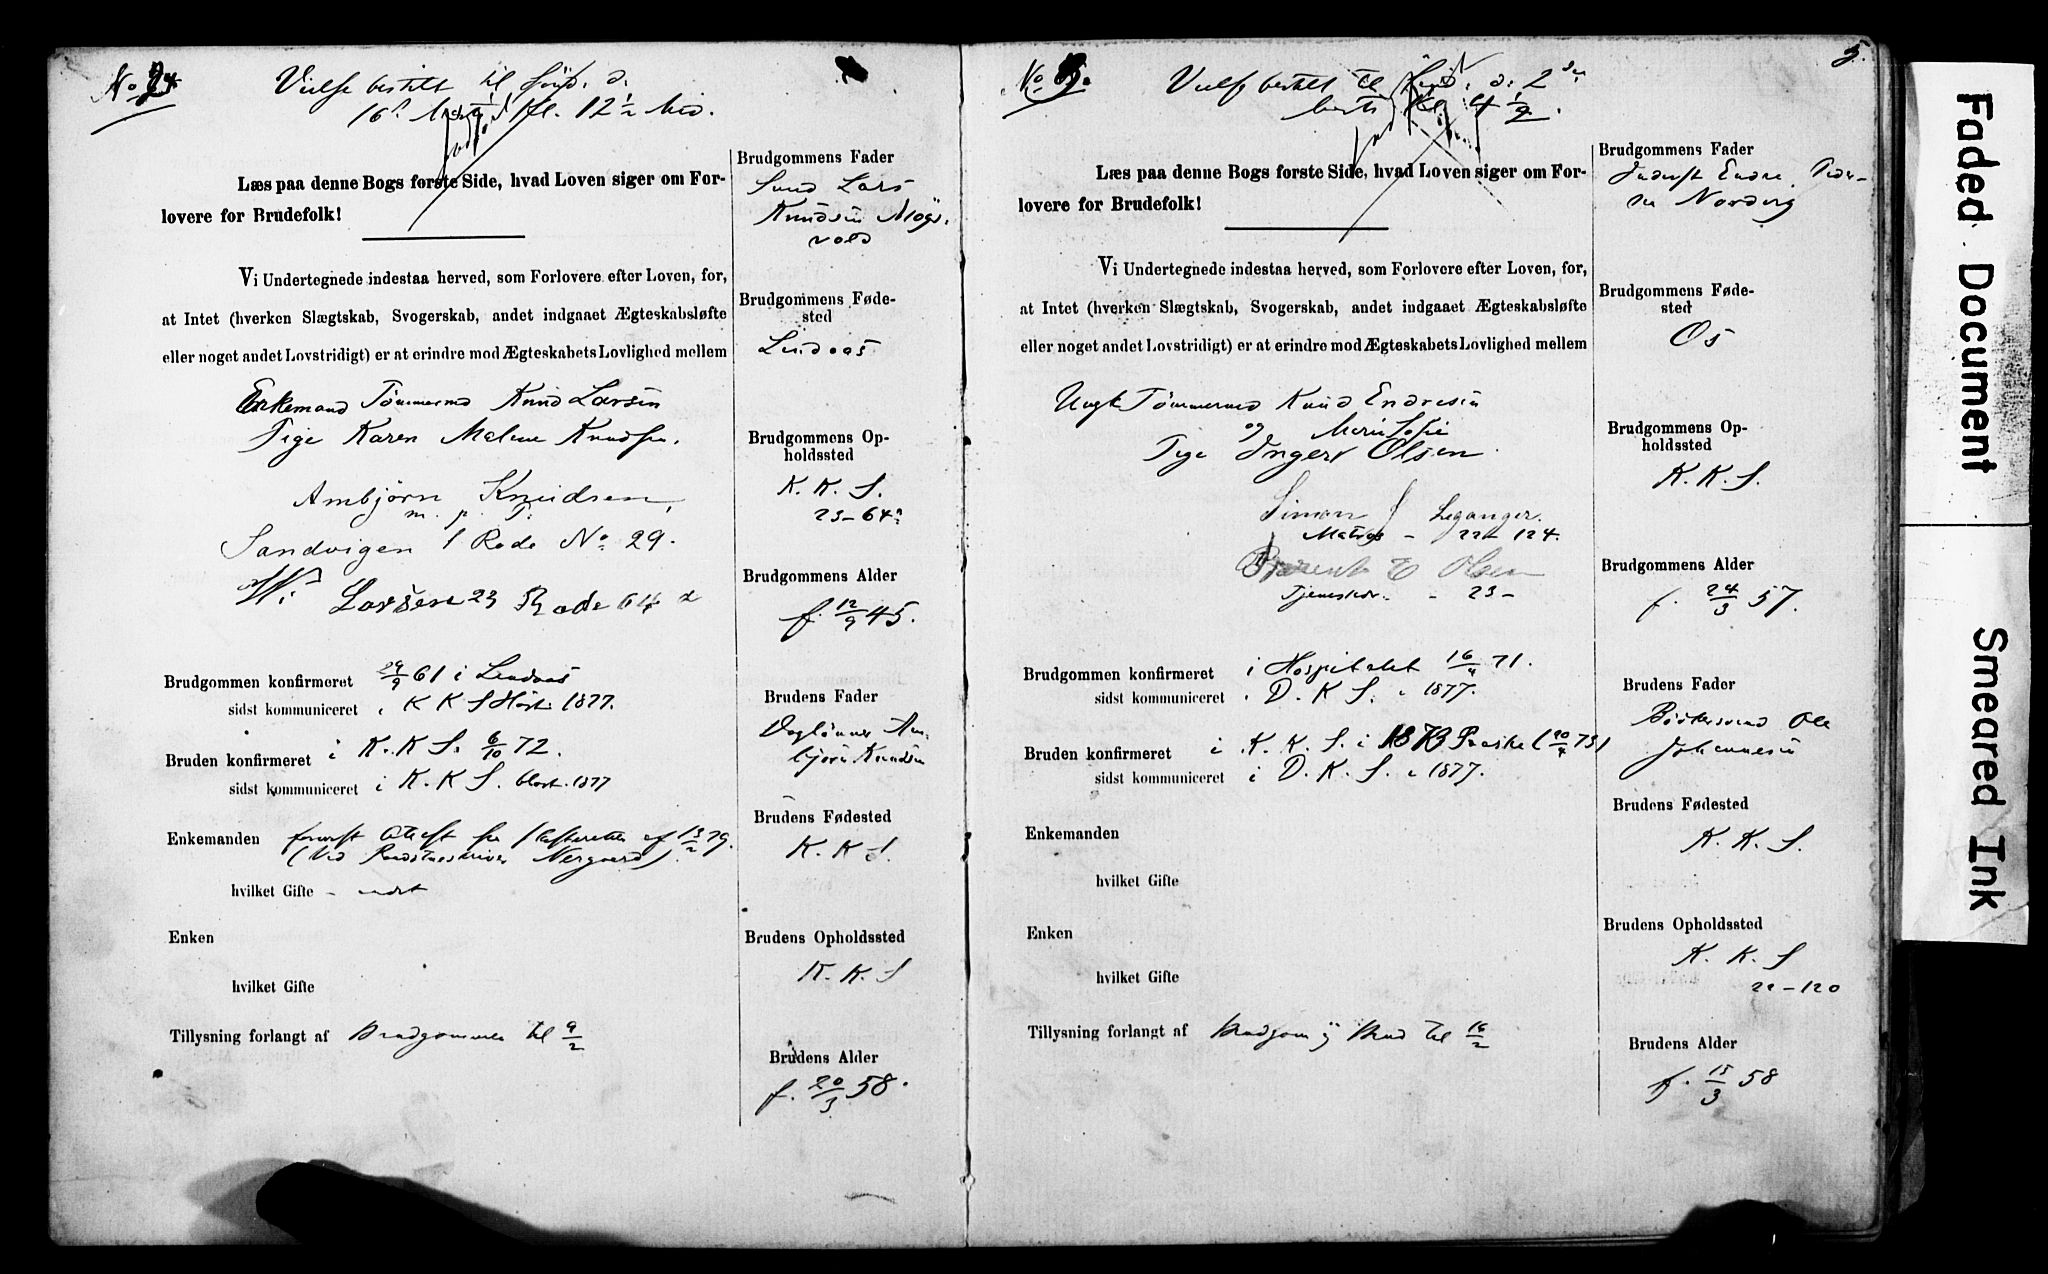 Vielse bestilt til Sønd. d.
16de Kl. 12 1/2 Mid.
Læs paa denne Bogs første Side, hvad Loven siger om For-
lovere for Brudefolk!
Vi Undertegnede indestaa herved, som Forlovere efter Loven, for,
at Intet (hverken Slægtskab, Svogerskab, andet indgaaet Ægteskabsløfte
eller noget andet Lovstridigt) er at erindre mod Ægteskabets Lovlighed mellem
Enkemand Tømmermd Knud Larsen
Pige Karen Malene Knudsen.
Ambjørn Knudsen,
m. p. P.
Sandvigen 1 Rode No 29.
Larsen 23 Rode 64 a
Brudgommen konfirmeret 29/9 61 i Lindaas
sidst kommuniceret i K K S Høst 1877.
Bruden konfirmeret i K. K S. 6/10 72.
sidst kommuniceret i K. K S. Høst 1877
Enkemanden Attest fra Skifteretten af 13/2 79.
(ved Nergaard).
hvilket Gifte - 
Enken
hvilket Gifte
Tillysning forlangt af Brudgommen til 9/2
Brudgommens Fader
Lars
Knudsen
Brudgommens Føde-
sted
Lindaas
Brudgommens Op-
holdssted
K. K. S.
23-64a
Brudgommens Alder
f. 12/9 45.
Brudens Fader
Daglønner Am-
bjørn Knudsen
Brudens Fødested
K. K S.
Brudens Opholdssted
K. K. S
Brudens Alder
f. 20/3 58.
5.
Vielse bestilt til Sønd. d. 2den
Kl. 4 1/2.
Læs paa denne Bogs første Side, hvad Loven siger om For-
lovere for Brudefolk!
Vi Undertegnede indestaa herved, som Forlovere efter Loven, for,
at Intet (hverken Slægtskab, Svogerskab, andet indgaaet Ægteskabsløfte
eller noget andet Lovstridigt) er at erindre mod Ægteskabets Lovlighed mellem
Ungk Tømmermd Knud Endresen
og Marie Sofie
Pige Inger Olsen.
Simon J Leganger.
Matros - 22 124.
Berent E Olsen
- 23 -
Brudgommen konfirmeret i Hospitalet 16/4 71.
sidst kommuniceret i D. K S. 1877.
Bruden konfirmeret i K. K. S. i 1873 Paaske (20/4 73)
sidst kommuniceret i D. K. S. 1877.
Enkemanden
hvilket Gifte
Enken
hvilket Gifte
Tillysning forlangt af Brudgom og Brud til 16/2
Brudgommens Fader
Inderst Endre Peder-
sen
Brudgommens Føde-
sted
Os
Brudgommens Op-
holdssted
K. K. S.
Brudgommens Alder
f. 24/3 57.
Brudens Fader
Bødkersvend Ole
Johannesen
Brudens Fødested
K. K. S.
Brudens Opholdssted
K. K. S
22-120
Brudens Alder
f. 15/3 58
Faded Document
Smeared Ink